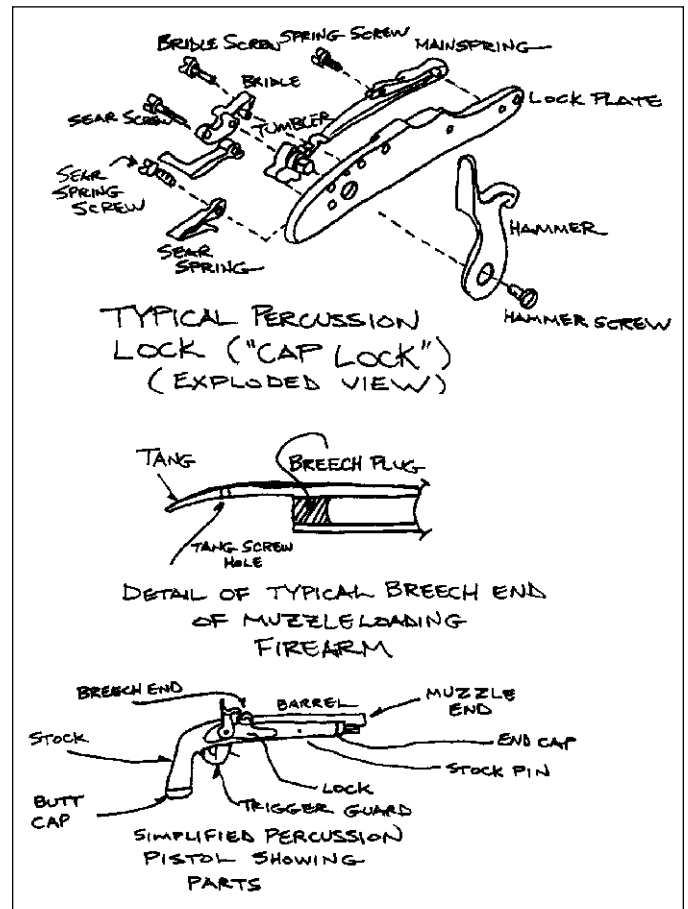 BRIDLE SCREW
SPRING SCREW
MAINSPRING
BRIDLE
LOCK PLATE
SEAR SCREW
TUMBLER
SEAR
SPRING
SCREW
HAMMER
SEAR
SPRING
HAMMER SCREW
TYPICAL PERCUSSION
LOCK ("CAP LOCK")
(EXPLODED VIEW)
TANG
BREECH PLUG
TANG SCREW
HOLE
DETAIL OF TYPICAL BREECH END
OF MUZZLELOADING
FIREARM
BREECH END
BARREL
MUZZLE
END
STOCK
END CAP
STOCK PIN
LOCK
BUTT
CAP
TRIGGER GUARD
SIMPLIFIED PERCUSSION
PISTOL SHOWING
PARTS